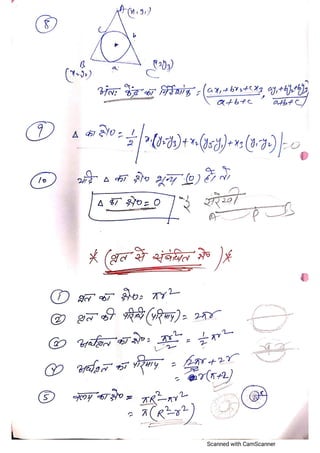 ⑧
A(x₁y₁)
c b
B a
(x₂y₂) (x₃y₃)
अन्तः केंद्र का निर्देशांक = (ax₁+bx₂+cx₃/a+b+c, ay₁+by₂+cy₃/a+b+c)
⑨ △ का क्षे० = 1/2 |x₁(y₂-y₃)+x₂(y₃-y₁)+x₃(y₁-y₂)| = 0
⑩ यदि △ का क्षे० शून्य (0) हो, तो
△ का क्षे० = 0 संरेखी
A P B
* (वृत्त से संबंधित क्षे०) *
① वृत्त का क्षे० = πr²
② वृत्त की परिधि (परिमाप) = 2πr
③ अर्धवृत्त का क्षे० = πr²/2 = 1/2 πr²
④ अर्धवृत्त का परिमाप = 2πr/2 + 2r
= r(π+2)
⑤ वलय का क्षे० = πR²-πr²
= π(R²-r²)
Scanned with CamScanner